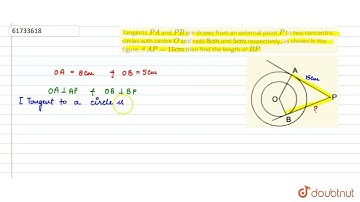 61733618
Tangents PA and PB are drawn from an external point P to two concentric
circles with centre O and radii 8cm and 5cm respectively, as shown in the
figure. If AP = 15cm then find the length of BP.
OA = 8cm f OB = 5cm
OA ⊥ AP f OB ⊥ BP
[ Tangent to a circle is
A
15cm
O
P
?
B
doubtnut